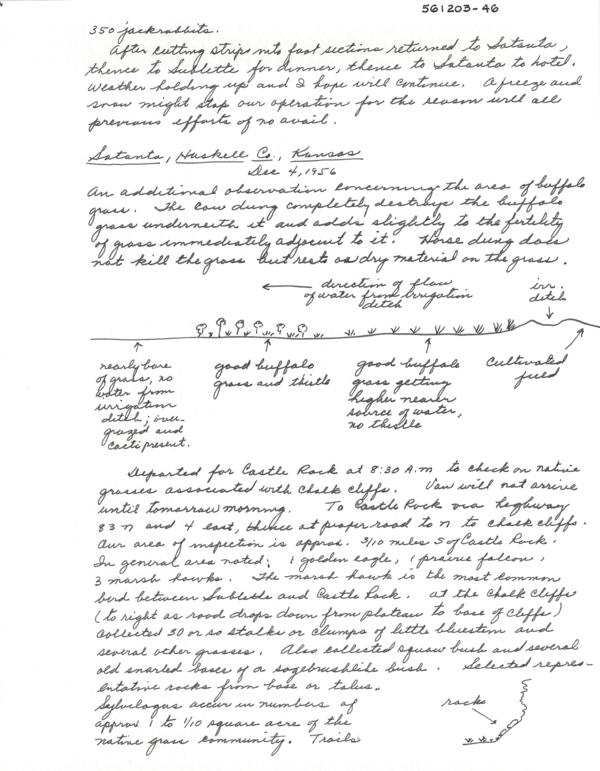 561203-46
350 jackrabbits.
After cutting strips into foot sections returned to Satanta,
thence to Sublette for dinner, thence to Satanta to hotel.
Weather holding up and I hope will continue. A freeze and
snow might stop our operation for the season with all
previous efforts of no avail.
Satanta, Haskell Co., Kansas
Dec 4, 1956
An additional observation concerning the area of buffalo
grass. The cow dung completely destroys the buffalo
grass underneath it and adds slightly to the fertility
of grass immediately adjacent to it. Horse dung does
not kill the grass but rests as dry material on the grass.
direction of flow
of water from irrigation
ditch
irr.
ditch
nearly bare
of grass, no
water from
irrigation
ditch; over-
grazed and
cacti present.
good buffalo
grass and thistle
good buffalo
grass getting
higher nearer
source of water,
no thistle
Cultivated
field
Departed for Castle Rock at 8:30 A.m to check on native
grasses associated with chalk cliffs. Van will not arrive
until tomorrow morning. To Castle Rock via highway
83 n and 4 east, thence at proper road to n to chalk cliffs.
Our area of inspection is approx. 3/10 miles S of Castle Rock.
In general area noted; 1 golden eagle, 1 prairie falcon,
3 marsh hawks. The marsh hawk is the most common
bird between Sublette and Castle Rock. At the chalk cliffs
(to right as road drops down from plateau to base of cliffs)
collected 30 or so stalks or clumps of little bluestem and
several other grasses. Also collected squaw bush and several
old snarled bases of a sagebrushlike bush. Selected repres-
entative rocks from base or talus.
Sylvilagus occur in numbers of
approx 1 to 1/10 square acre of the
native grass community. Trails
rocks